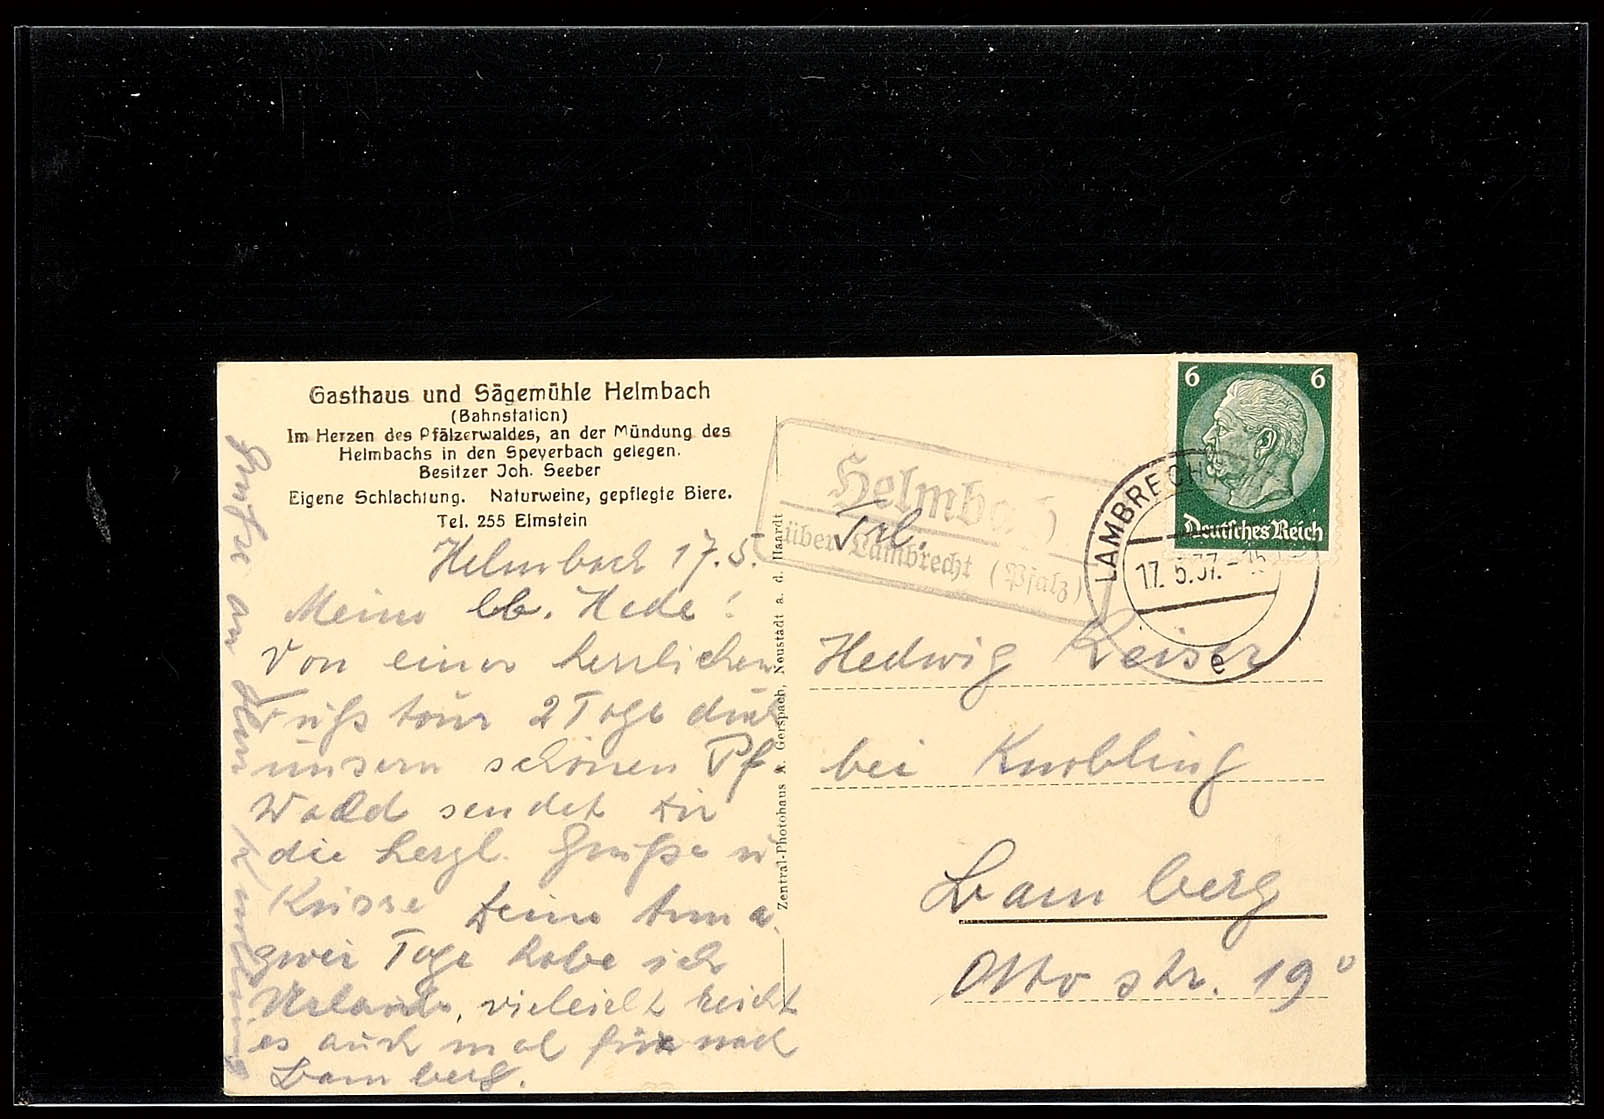 Gasthaus und Sägemühle Helmbach
(Bahnstation)
Im Herzen des Pfälzerwaldes, an der Mündung des
Helmbachs in den Speyerbach gelegen.
Besitzer Joh. Seeber
Eigene Schlachtung. Naturweine, gepflegte Biere.
Tel. 255 Elmstein
Helmbach 17.5.
Meine lb. Hede!
Von einer herrlichen
Fußtour 2 Tage durch
unsern schönen Pf
Wald sendet Dir
die herzl. Grüße u
Küsse Deine Anna.
zwei Tage habe ich
Urlaub, vieleicht reicht
es auch mal für nach
Bamberg.
Grüße an Herr Knobling
Zentral-Photohaus A. Gerspach, Neustadt a. d. Haardt
Helmbach
über Lambrecht (Pfalz)
Frl.
6 6
Deutsches Reich
LAMBRECHT
17.5.37.
e
Hedwig Reiser
bei Knobling
Bamberg
Ottostr. 19⁰